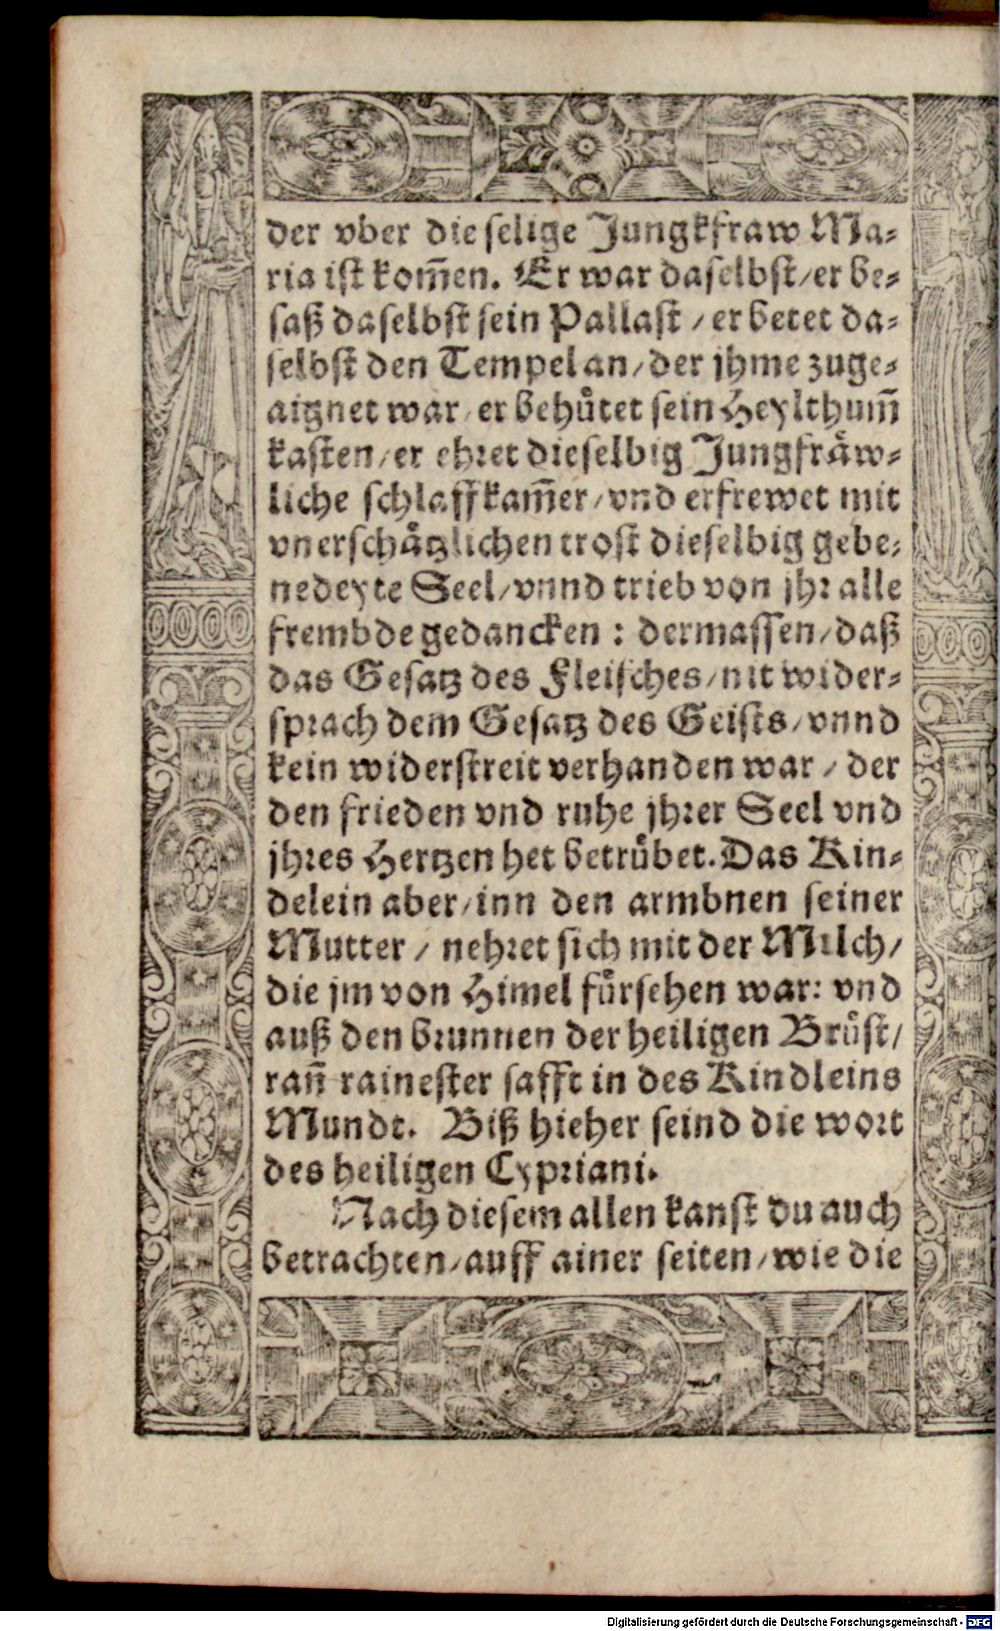 der vber die selige Jungkfraw Ma⸗
ria ist kom̃en. Er war daselbst/er be⸗
saß daselbst sein Pallast / er betet da⸗
selbst den Tempel an/der jhme zuge⸗
aignet war/er behuͤtet sein Heylthum̃
kasten/er ehret dieselbig Jungfraͤw⸗
liche schlaffkam̃er/vnd erfrewet mit
vnerschaͤtzlichen trost dieselbig gebe⸗
nedeyte Seel/vnnd trieb von jhr alle
frembde gedancken : dermassen/daß
das Gesatz des Fleisches/nit wider⸗
sprach dem Gesatz des Geists/vnnd
kein widerstreit verhanden war / der
den frieden vnd ruhe jhrer Seel vnd
jhres Hertzen het betruͤbet. Das Kin⸗
delein aber/inn den armbnen seiner
Mutter / nehret sich mit der Milch/
die jm von Himel fuͤrsehen war: vnd
auß den brunnen der heiligen Bruͤst/
ran̄ rainester safft in des Kindleins
Mundt. Biß hieher seind die wort
des heiligen Cypriani.
Nach diesem allen kanst du auch
betrachten/auff ainer seiten/wie die
Digitalisierung gefördert durch die Deutsche Forschungsgemeinschaft - DFG